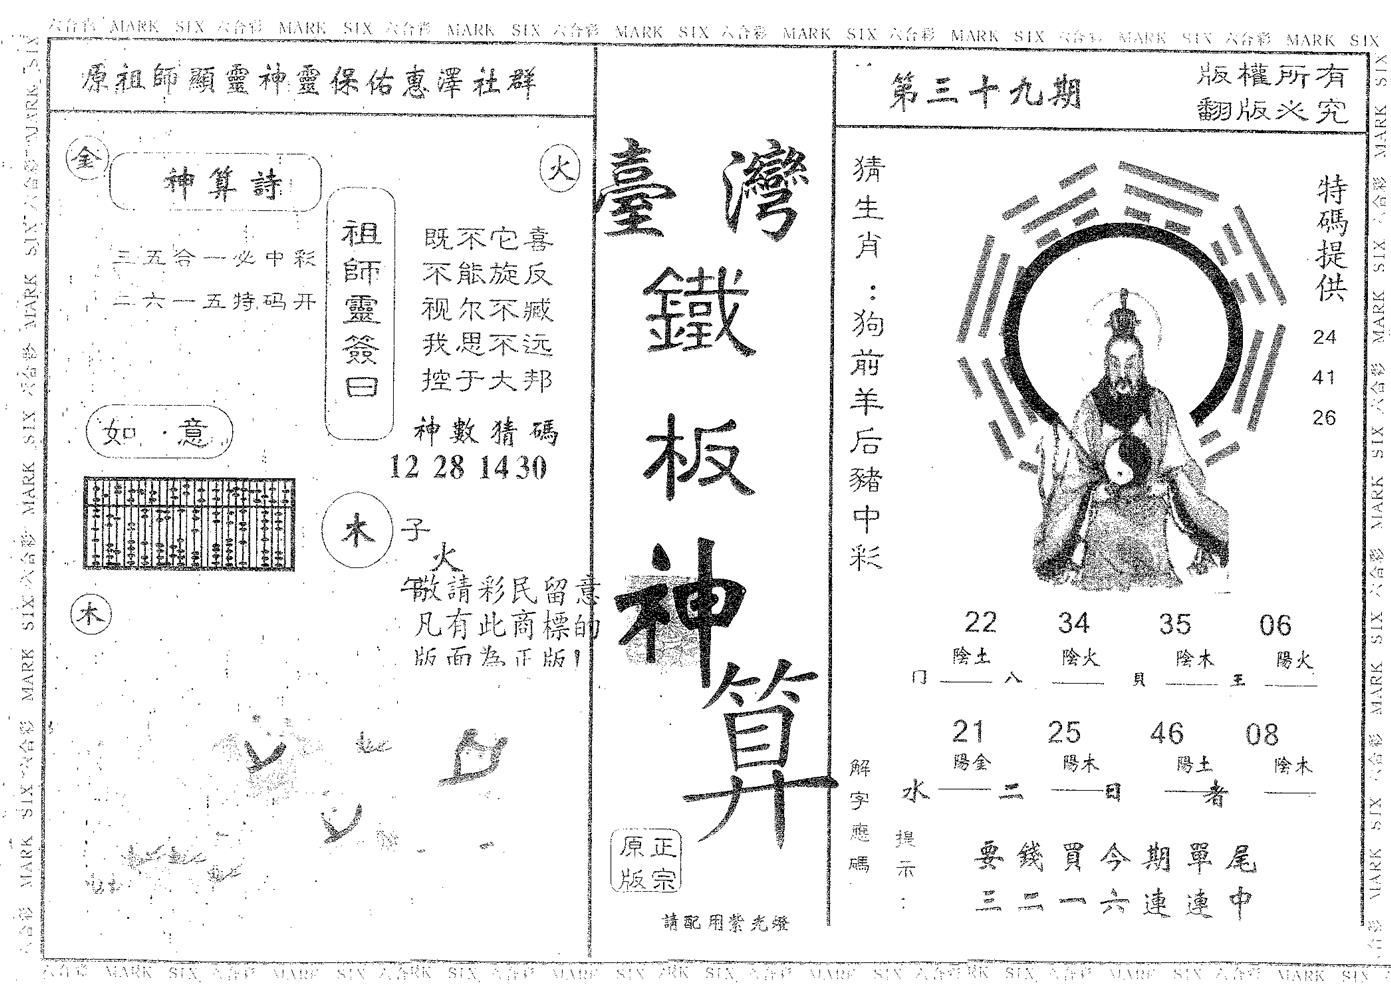 六合彩 MARK SIX 六合彩 MARK SIX 六合彩 MARK SIX 六合彩 MARK SIX 六合彩 MARK SIX 六合彩 MARK SIX 六合彩 MARK SIX 六合彩 MARK SIX
原祖師顯靈神靈保佑惠澤社群
金
神算詩
火
三五合一必中彩
二六一五特码开
祖師靈簽曰
既不它喜
不能旋反
视尔不臧
我思不远
控于大邦
如·意
神數猜碼
12 28 14 30
木
子
火
午
敬請彩民留意
凡有此商標的
版面為正版!
木
臺灣
鐵
板
神
算
正宗
原版
請配用紫光燈
第三十九期
版權所有
翻版必究
猜生肖:狗前羊后豬中彩
特碼提供
24
41
26
22 34 35 06
陰土 陰火 陰木 陽火
门 八 貝 王
21 25 46 08
陽金 陽木 陽土 陰木
水 二 日 者
解字應碼
提示:
要錢買今期單尾
三二一六連連中
六合彩 MARK SIX 六合彩 MARK SIX 六合彩 MARK SIX 六合彩 MARK SIX 六合彩 MARK SIX 六合彩 MARK SIX 六合彩 MARK SIX 六合彩 MARK SIX